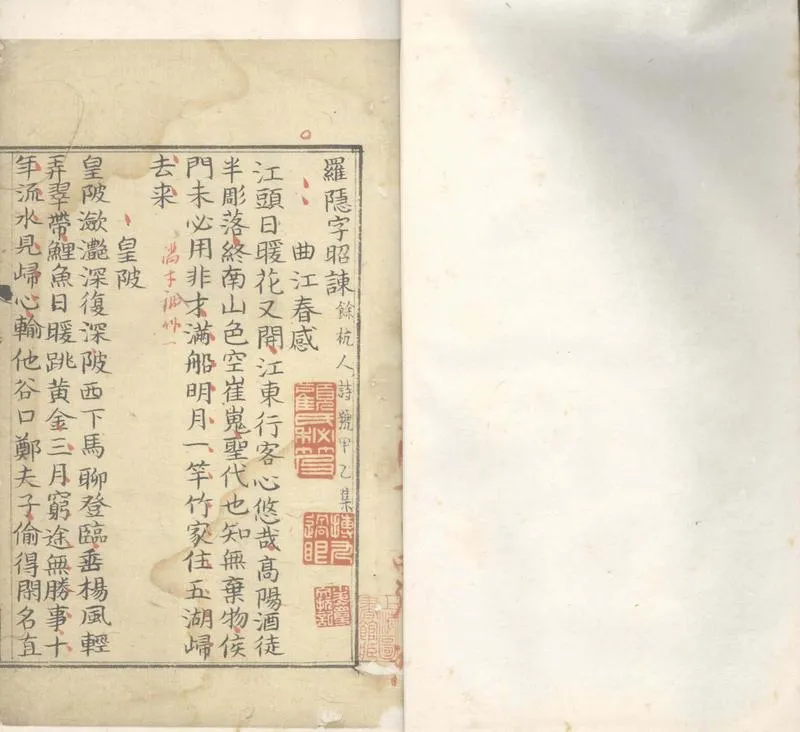 羅隱字昭諫餘杭人詩號甲乙集
曲江春感
江頭日暖花又開江東行客心悠哉高陽酒徒
半彫落終南山色空崔嵬聖代也知無棄物侯
門未必用非才滿船明月一竿竹家住五湖歸
去来
皇陂
皇陂瀲灧深復深陂西下馬聊登臨垂楊風輕
弄翠帶鯉魚日暖跳黄金三月窮途無勝事十
年流水見歸心輸他谷口鄭夫子偷得閑名直